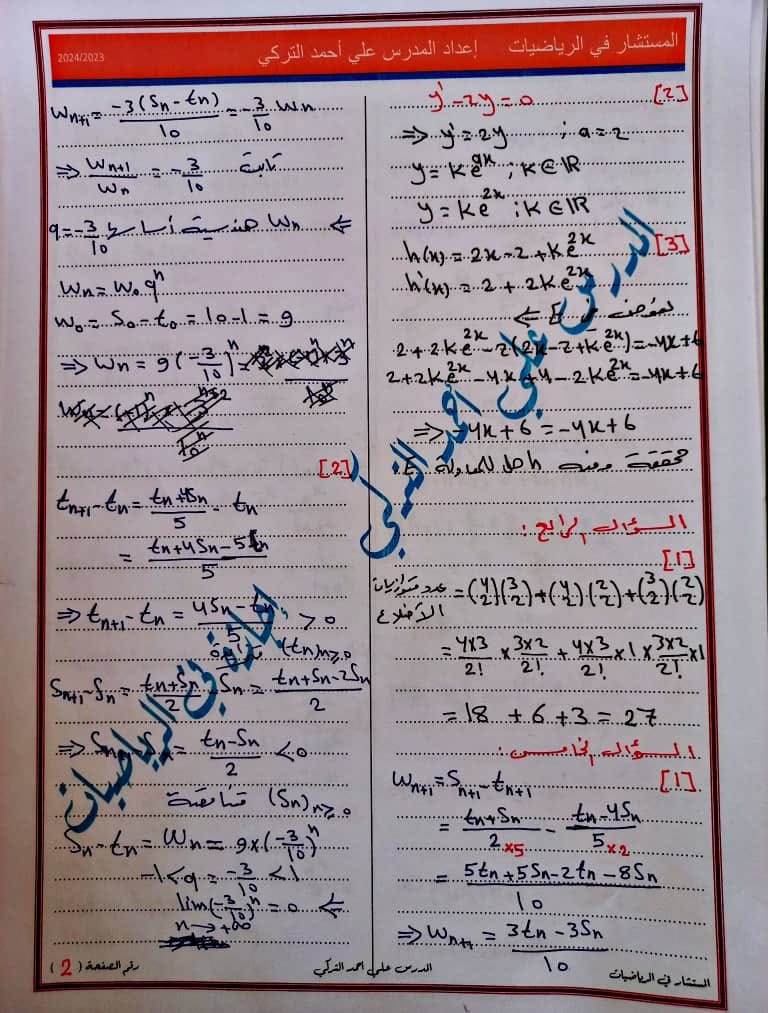 المستشار في الرياضيات إعداد المدرس علي أحمد التركي 2024/2023
[2] y' - 2y = 0
⇒ y' = 2y ; a = 2
y = k e^{ax} ; k ∈ ℝ
y = k e^{2x} ; k ∈ ℝ
[3] h(x) = 2x - 2 + k e^{2x}
h'(x) = 2 + 2k e^{2x}
نعوض في E ⇐
2 + 2k e^{2x} - 2(2x - 2 + k e^{2x}) = -4x + 6
2 + 2k e^{2x} - 4x + 4 - 2k e^{2x} = -4x + 6
⇒ -4x + 6 = -4x + 6
محققة ومنه h حل للمعادلة E
السؤال الرابع:
[1]
عدد متوازيات الأضلاع = (4 2)(3 2) + (4 2)(2 2) + (3 2)(2 2)
= 4×3/2! × 3×2/2! + 4×3/2! × 1 × 3×2/2! × 1
= 18 + 6 + 3 = 27
السؤال الخامس:
[1] w_{n+1} = S_{n+1} - t_{n+1}
= (t_n + S_n)/2 ×5 - (t_n - 4S_n)/5 ×2
= (5t_n + 5S_n - 2t_n - 8S_n)/10
⇒ w_{n+1} = (3t_n - 3S_n)/10
w_{n+1} = -3(S_n - t_n)/10 = -3/10 w_n
⇒ w_{n+1}/w_n = -3/10 ثابتة
⇐ w_n هندسية أساسها q = -3/10
w_n = w_0 q^n
w_0 = S_0 - t_0 = 10 - 1 = 9
⇒ w_n = 9(-3/10)^n
[2]
t_{n+1} - t_n = (t_n + 4S_n)/5 - t_n
= (t_n + 4S_n - 5t_n)/5
⇒ t_{n+1} - t_n = (4S_n - t_n)/5 > 0
(t_n)_{n≥0}
S_{n+1} - S_n = (t_n + S_n)/2 - S_n = (t_n + S_n - 2S_n)/2
⇒ = (t_n - S_n)/2 < 0
(S_n)_{n≥0} متناقصة
S_n - t_n = w_n = 9×(-3/10)^n
-1 < q = -3/10 < 1
lim_{n→+∞} (-3/10)^n = 0 ⇐
المدرس علي أحمد التركي
إجازة في الرياضيات
المستشار في الرياضيات المدرس علي أحمد التركي رقم الصفحة ( 2 )